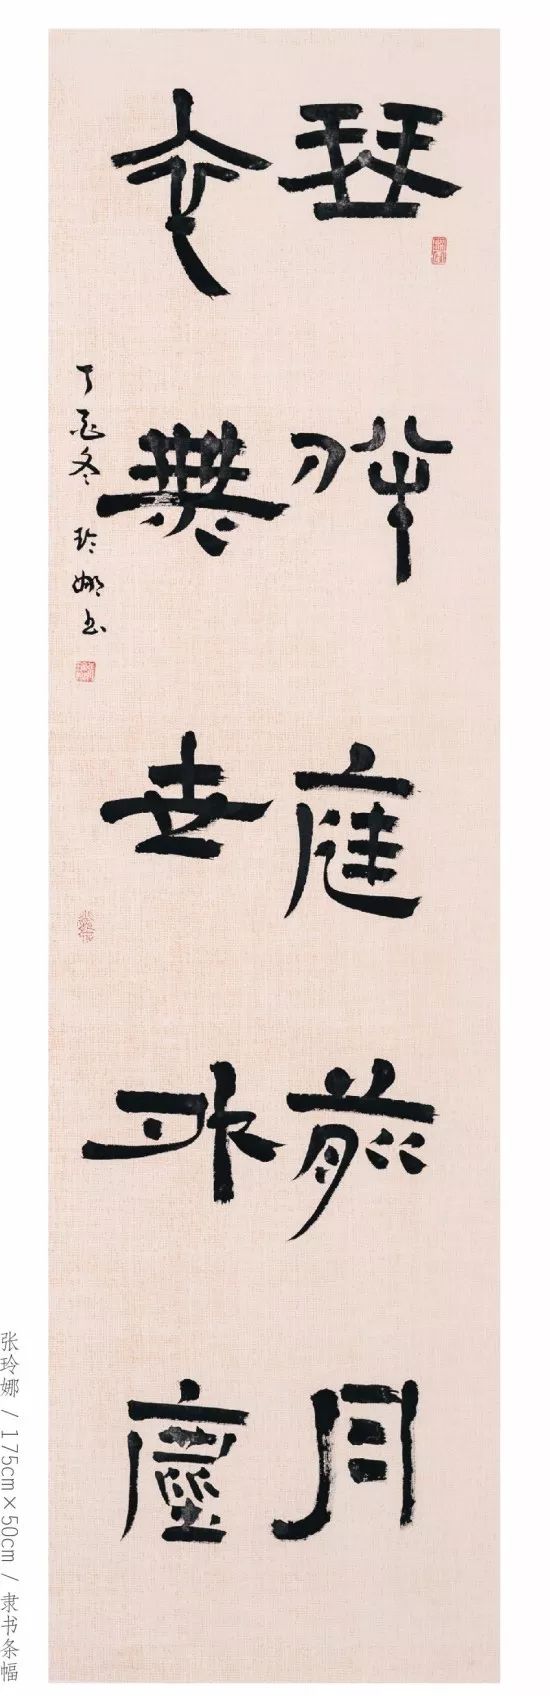 琴伴庭前月
衣無世外塵
丁酉冬 玲娜书
张玲娜 / 175cm×50cm / 隶书条幅